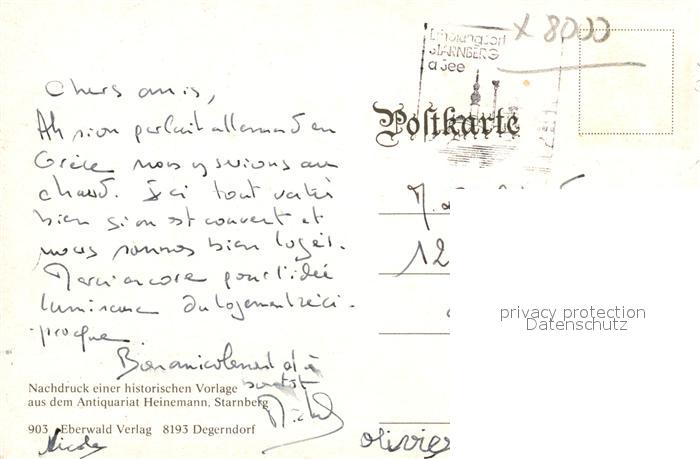 x 8000
Erholungsort
STARNBERG
a See
Postkarte
Chers amis,
Ah si on parlait allemand en
Grèce nous y serions au
chaud. Ici tout va très
bien si on est couvert et
nous sommes bien logés.
Merci encore pour l'idée
lumineuse du logement réci-
-proque.
Bien amicalement et à
bientôt
Michel
Nicole
olivie
M.
12
Nachdruck einer historischen Vorlage
aus dem Antiquariat Heinemann, Starnberg
903 Eberwald Verlag 8193 Degerndorf
privacy protection
Datenschutz